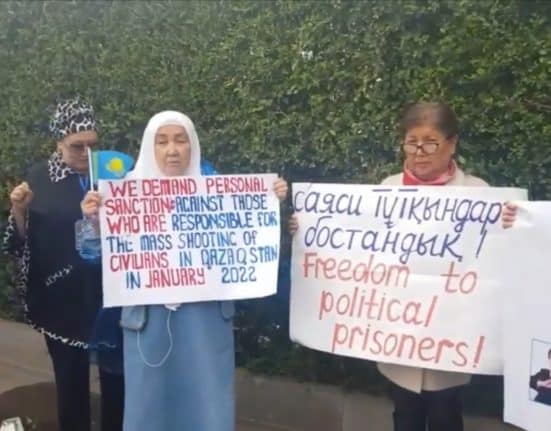 WE DEMAND PERSONAL
SANCTIONS AGAINST THOSE
WHO ARE RESPONSIBLE FOR
THE MASS SHOOTING OF
CIVILIANS IN QAZAQSTAN
IN JANUARY 2022
саяси тұтқындар
бостандық!
Freedom to
political
prisoners!